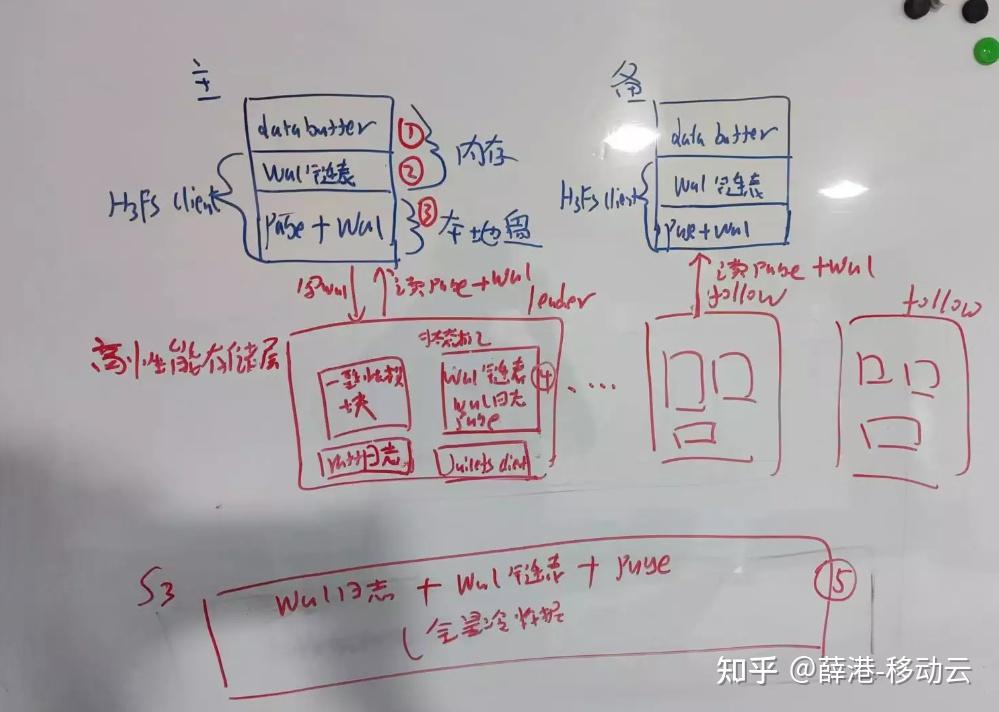 主
备
data buffer
①
wal链表
②
内存
H3Fs client
page + wal
③
本地盘
data buffer
wal链表
H3Fs client
page + wal
写wal
读page + wal
leader
读page + wal
follow
follow
高性能存储层
状态机
一致性模块
wal链表
wal日志
page
④
.....
raft日志
S3
wal日志 + wal链表 + page
⑤
(全量冷数据
知乎 @薛港-移动云